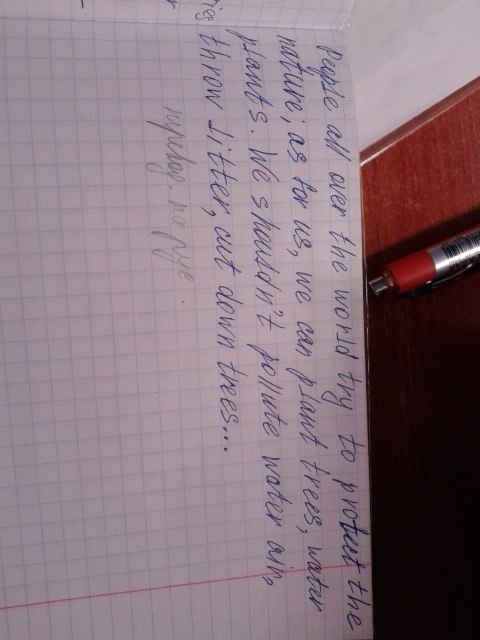 People all over the world try to protect the
nature; as for us, we can plant trees, water
plants. We shouldn't pollute water air,
throw litter, cut down trees...